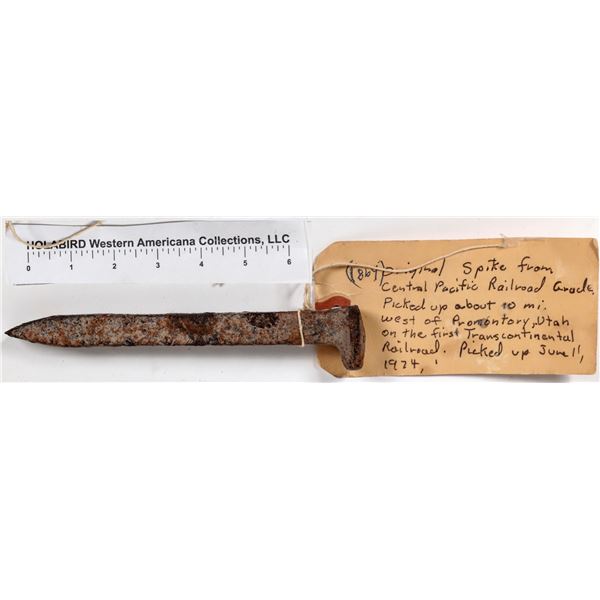 HOLABIRD Western Americana Collections, LLC
0 1 2 3 4 5 6
(1869) Original Spike from
Central Pacific Railroad Grade.
Picked up about 10 mi.
west of Promontory, Utah
on the first Transcontinental
Railroad. Picked up June 11,
1974,